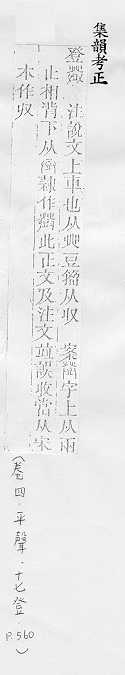 集韻考正
登 注說文上車也从癶豆 籀从収 案 字上从兩
止相背下从 隸作 此正文及注文竝誤收當从宋
本作収
(卷四．平聲．十七登．p.560)